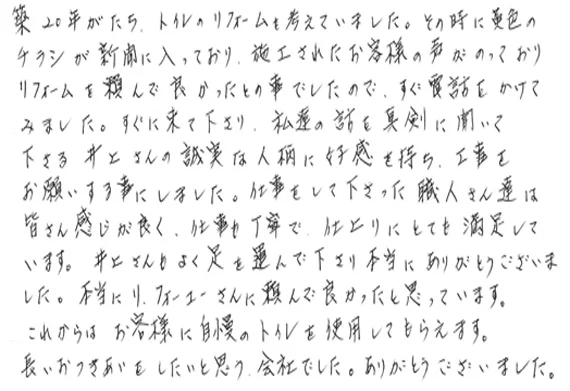 築20年がたち、トイレのリフォームを考えていました。その時に黄色の
チラシが新聞に入っており、施工されたお客様の声がのっており
リフォームを頼んで良かったとの事でしたので、すぐ電話をかけて
みました。すぐに来て下さり、私達の話を真剣に聞いて
下さる井上さんの誠実な人柄に好感を持ち、工事を
お願いする事にしました。仕事をして下さった職人さん達は
皆さん感じが良く、仕事も丁寧で、仕上りにとても満足して
います。井上さんもよく足を運んで下さり本当にありがとうございま
した。本当にリ、フォーユーさんに頼んで良かったと思っています。
これからはお客様に自慢のトイレを使用してもらえます。
長いおつきあいをしたいと思う、会社でした。ありがとうございました。